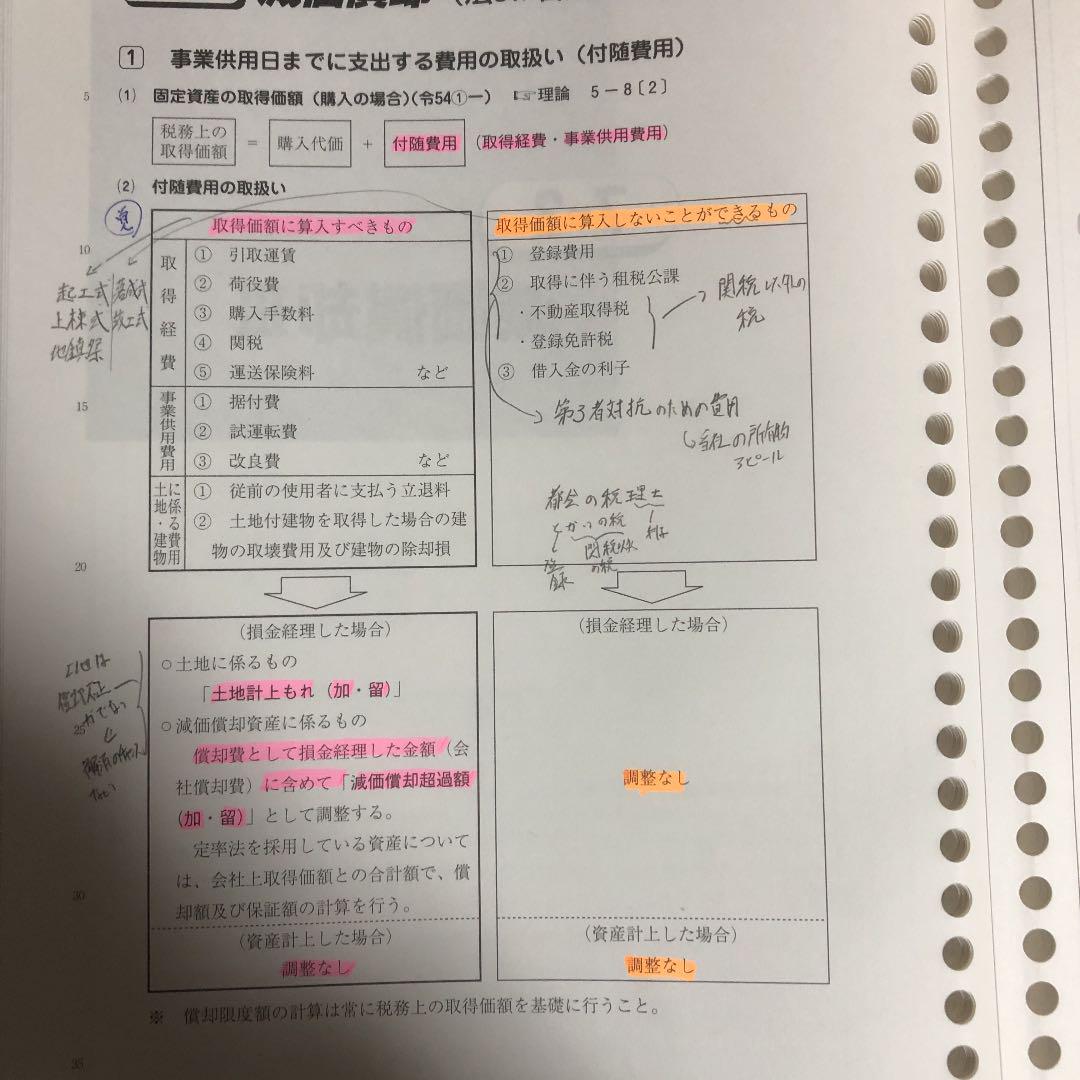 減価償却
1 事業供用日までに支出する費用の取扱い（付随費用）
5 (1) 固定資産の取得価額（購入の場合）（令54①一） ☞理論 5－8〔2〕
税務上の取得価額 ＝ 購入代価 ＋ 付随費用 （取得経費・事業供用費用）
(2) 付随費用の取扱い
覚
取得価額に算入すべきもの
10
取得経費
① 引取運賃
② 荷役費
③ 購入手数料
④ 関税
⑤ 運送保険料 など
起工式
上棟式
地鎮祭
落成式
竣工式
15
事業供用費用
① 据付費
② 試運転費
③ 改良費 など
土地・建物に係る費用
① 従前の使用者に支払う立退料
② 土地付建物を取得した場合の建
物の取壊費用及び建物の除却損
20
取得価額に算入しないことができるもの
① 登録費用
② 取得に伴う租税公課
・不動産取得税
・登録免許税
③ 借入金の利子
関税以外の
税
第3者対抗のための費用
当社の所有的
アピール
都会の税理士
とかいの税
登録
関税以外
の税
利子
（損金経理した場合）
○土地に係るもの
「土地計上もれ（加・留）」
○減価償却資産に係るもの
償却費として損金経理した金額（会
社償却費）に含めて「減価償却超過額
（加・留）」として調整する。
定率法を採用している資産について
は、会社上取得価額との合計額で、償
却額及び保証額の計算を行う。
土地は
25
30
（資産計上した場合）
調整なし
（損金経理した場合）
調整なし
（資産計上した場合）
調整なし
※ 償却限度額の計算は常に税務上の取得価額を基礎に行うこと。
35